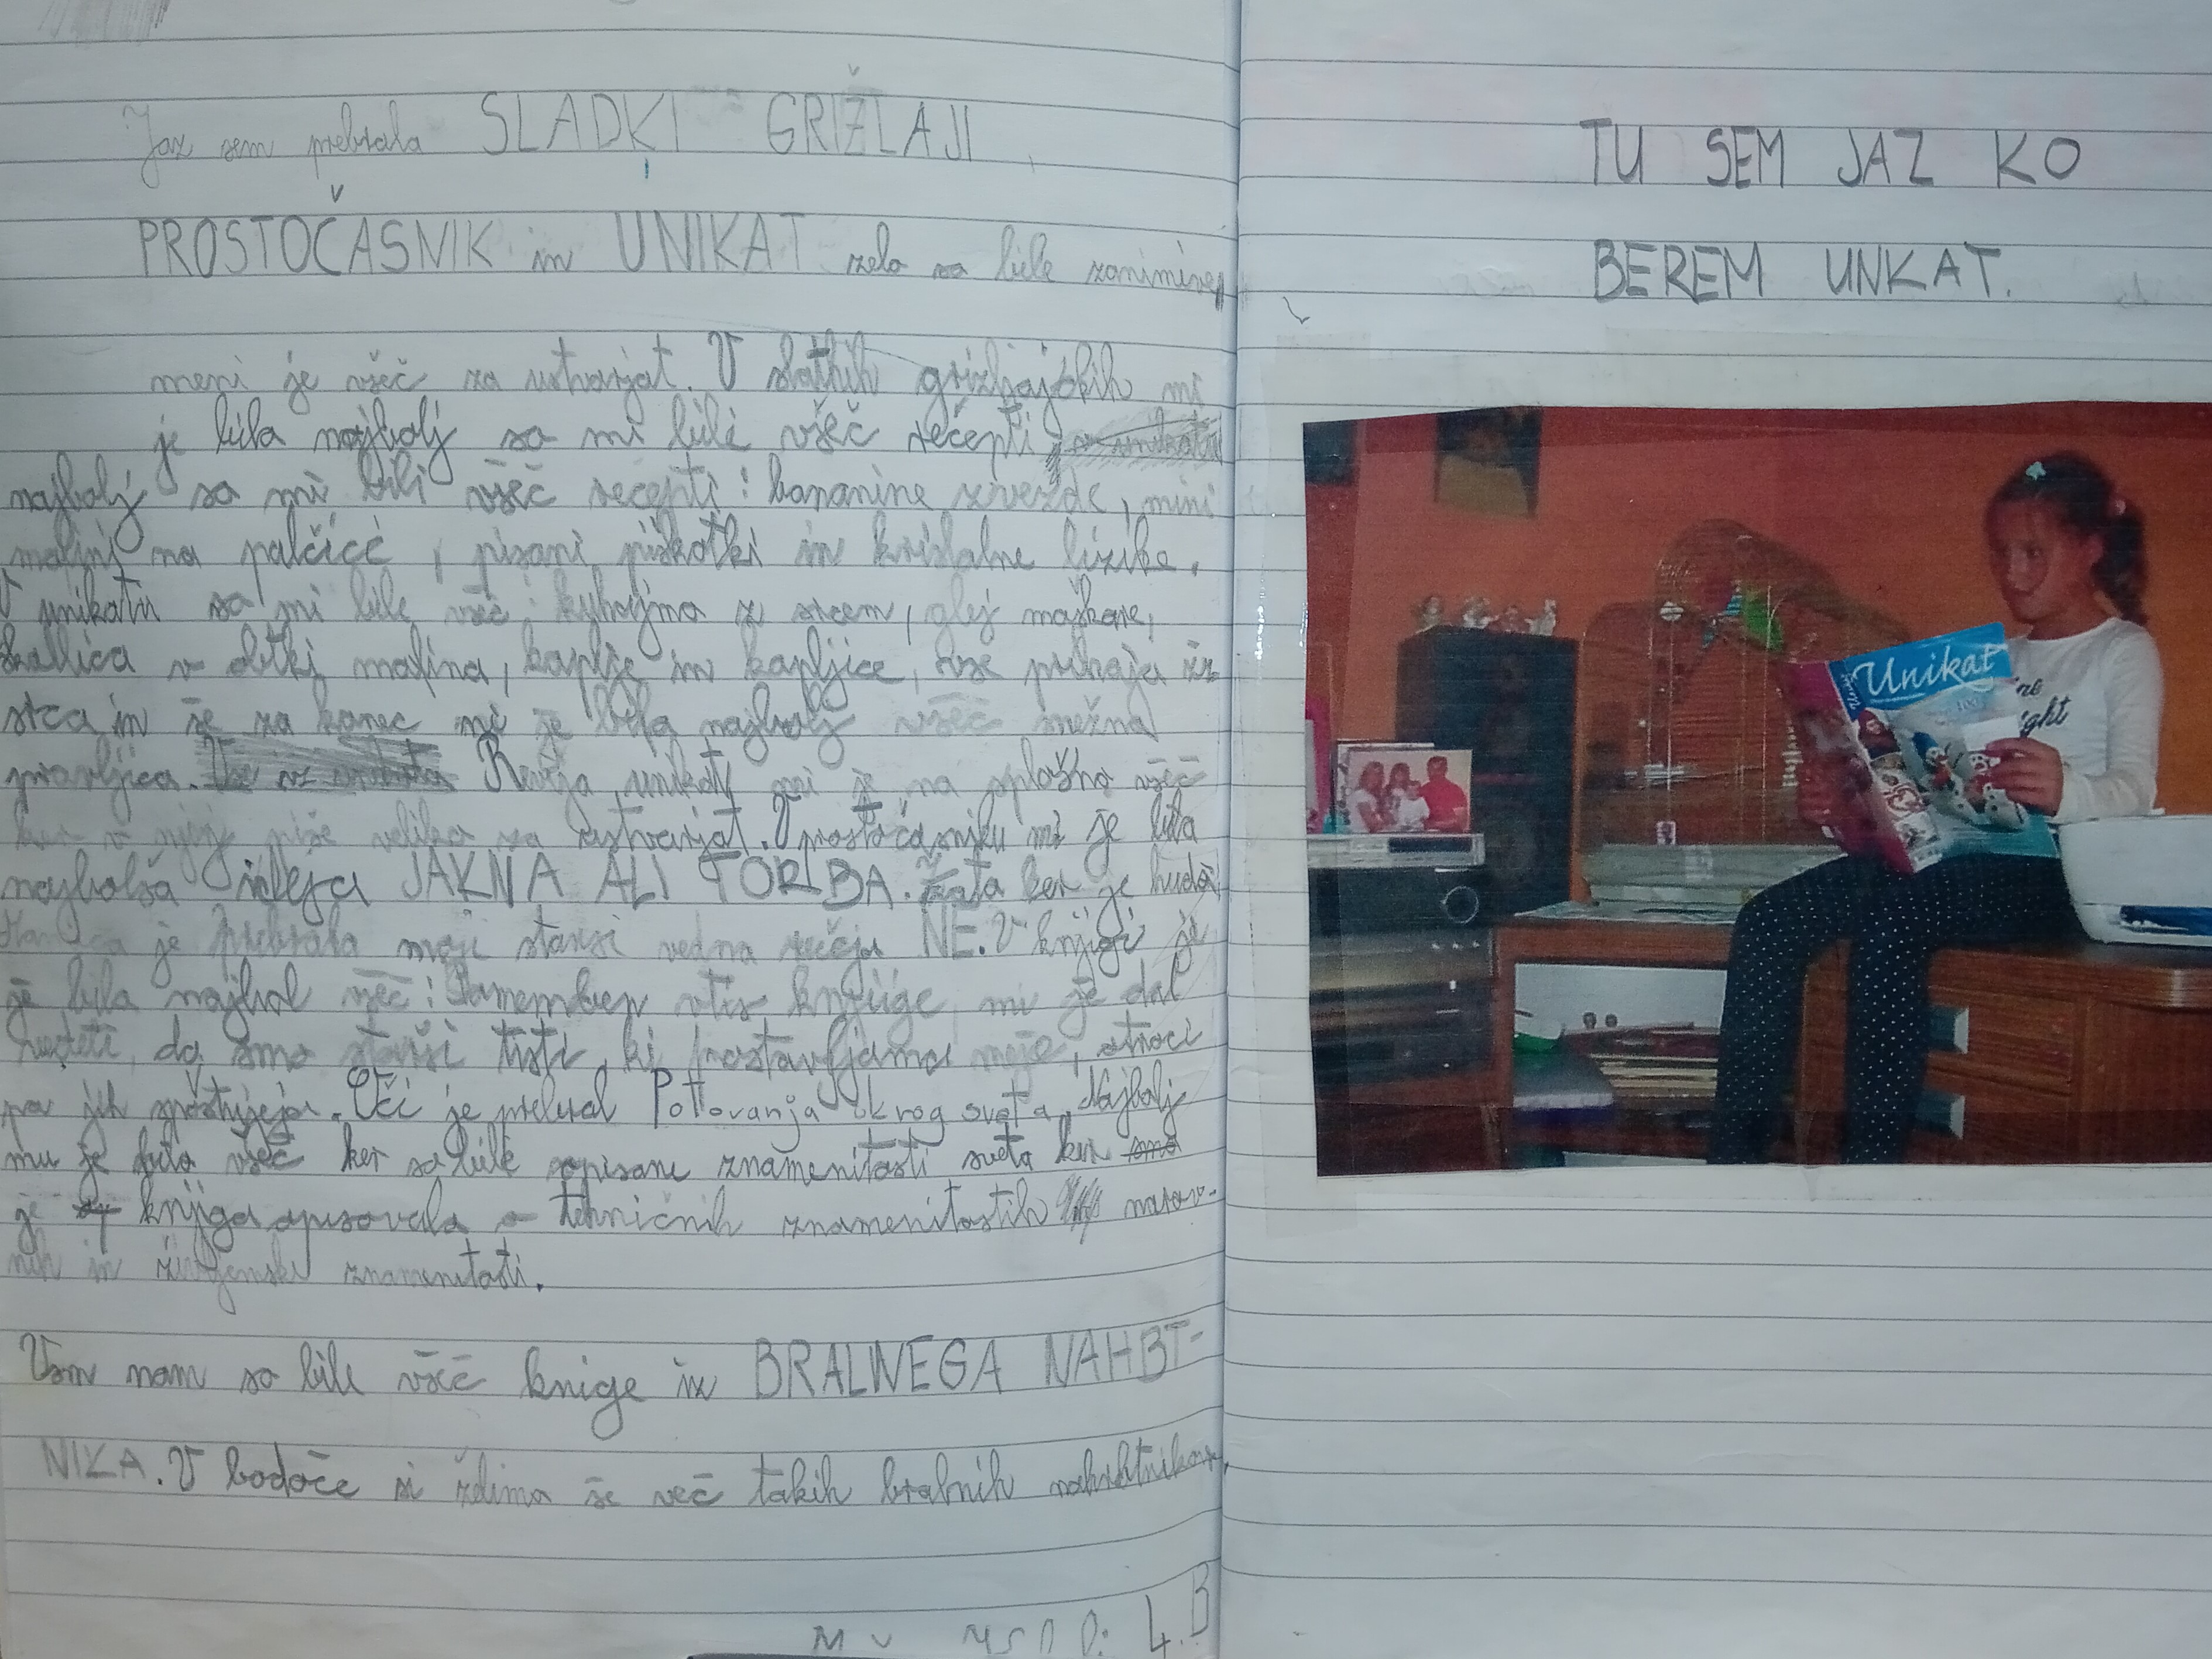 Jaz sem prebrala SLADKI GRIŽLAJI,
PROSTOČASNIK in UNIKAT zelo so bile zanimive,
meni je všeč za ustvarjat. V slatkih grižlajčkih mi
je bila najbolj so mi bili všeč rečepti
najbolj so mi bili všeč recepti: bananine zvezde, mini
malini na palčice, pisani piškotki in kristalne lizike.
V unikatu so mi bile všeč: kuhajmo z srcem, glej maškare,
škatlica v obliki malina, kaplje in kapljice, vse prihaja iz
srca in še za konec mi je bila najbolj všeč snežna
pravljica. Revija unikat mi je na splošno všeč
ker v njej piše veliko za ustvarjat. V prostočasniku mi je bila
najbolša ideja JAKNA ALI TORBA. Zato ker je huda.
je prebrala moji starši vedno rečejo NE. V knjigi ji
je bila najbol všeč: knjige mi je dal
vedeti, da smo starši tisti, ki postavljamo meje, otroci
pa jih spoštujejo. Oči je prebral Potovanja okrog sveta. Najbolj
mu je bilo všeč ker so bile opisane znamenitosti sveta ker smo
je knjiga opisovala o tehničnih znamenitostih narav-
nih in življenski znamenitosti.
Vsem nam so bile všeč knige iz BRALNEGA NAHBT-
NIKA. V bodoče si želimo še več takih bralnih nahrbtnikov.
4.B
TU SEM JAZ KO
BEREM UNKAT.
Unikat